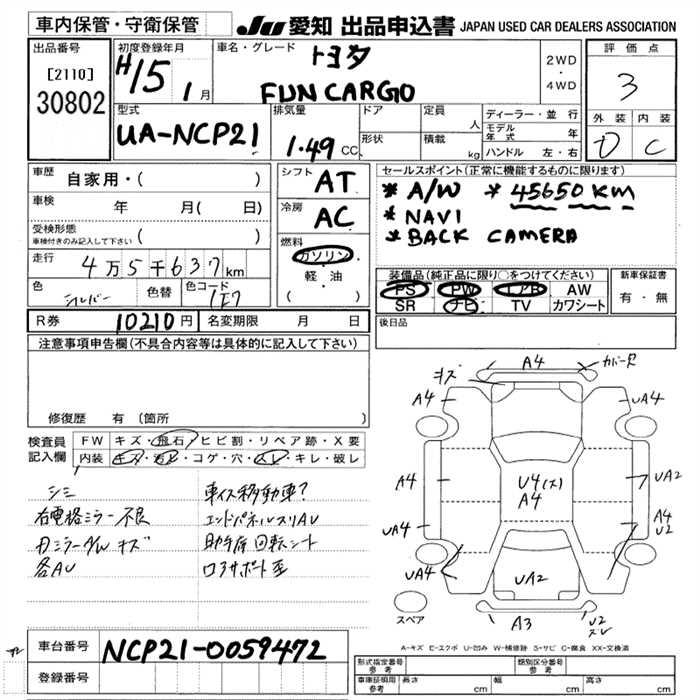 車内保管・守衛保管
JU 愛知 出品申込書 JAPAN USED CAR DEALERS ASSOCIATION
出品番号
[2110]
30802
初度登録年月
H15 1月
車名・グレード
トヨタ
FUN CARGO
2WD
・
4WD
評価点
3
外装 内装
D C
型式
UA-NCP21
排気量
1.49 CC
ドア
形状
定員 人
積載 kg
ディーラー・並行
モデル年式 年
ハンドル 左・右
車歴 自家用・( )
車検 年 月( 日)
受検形態 ( )
車検付きのみ記入して下さい
走行 4万5千637km
色 シルバー 色替 色コード 1E7
シフト AT
冷房 AC
燃料
ガソリン
軽・油
( )
セールスポイント(正常に機能するものに限ります)
* A/W * 45650 KM
* NAVI
* BACK CAMERA
装備品(純正品に限り○をつけてください)
PS PW エアB AW
SR ナビ TV カワシート
新車保証書
有・無
後日品
R券 10210円 名変期限 月 日
注意事項申告欄(不具合内容等は具体的に記入して下さい)
修復歴 有(箇所 )
検査員記入欄
FW キズ・飛石・ヒビ割・リペア跡・X要
内装 キズ・汚レ・コゲ・穴・スレ・キレ・破レ
シミ
右電格ミラー不良
各AU
車イス移動車?
エンドパネルスリAU
助手席回転シート
コアサポート歪
キズ A4 カバー欠
A4 UA4
A4 U4(ス) A4 UA2
UA4 A4 U2
UA4 UA2
A3 U2 スレ
スペア
A-キズ E-エクボ U-凹み W-補修跡 S-サビ C-腐食 XX-交換済
車台番号 NCP21-0059472
登録番号
形式指定番号 参考
類別区分番号 参考
車庫証明用 参考 長さ cm 幅 cm 高さ cm